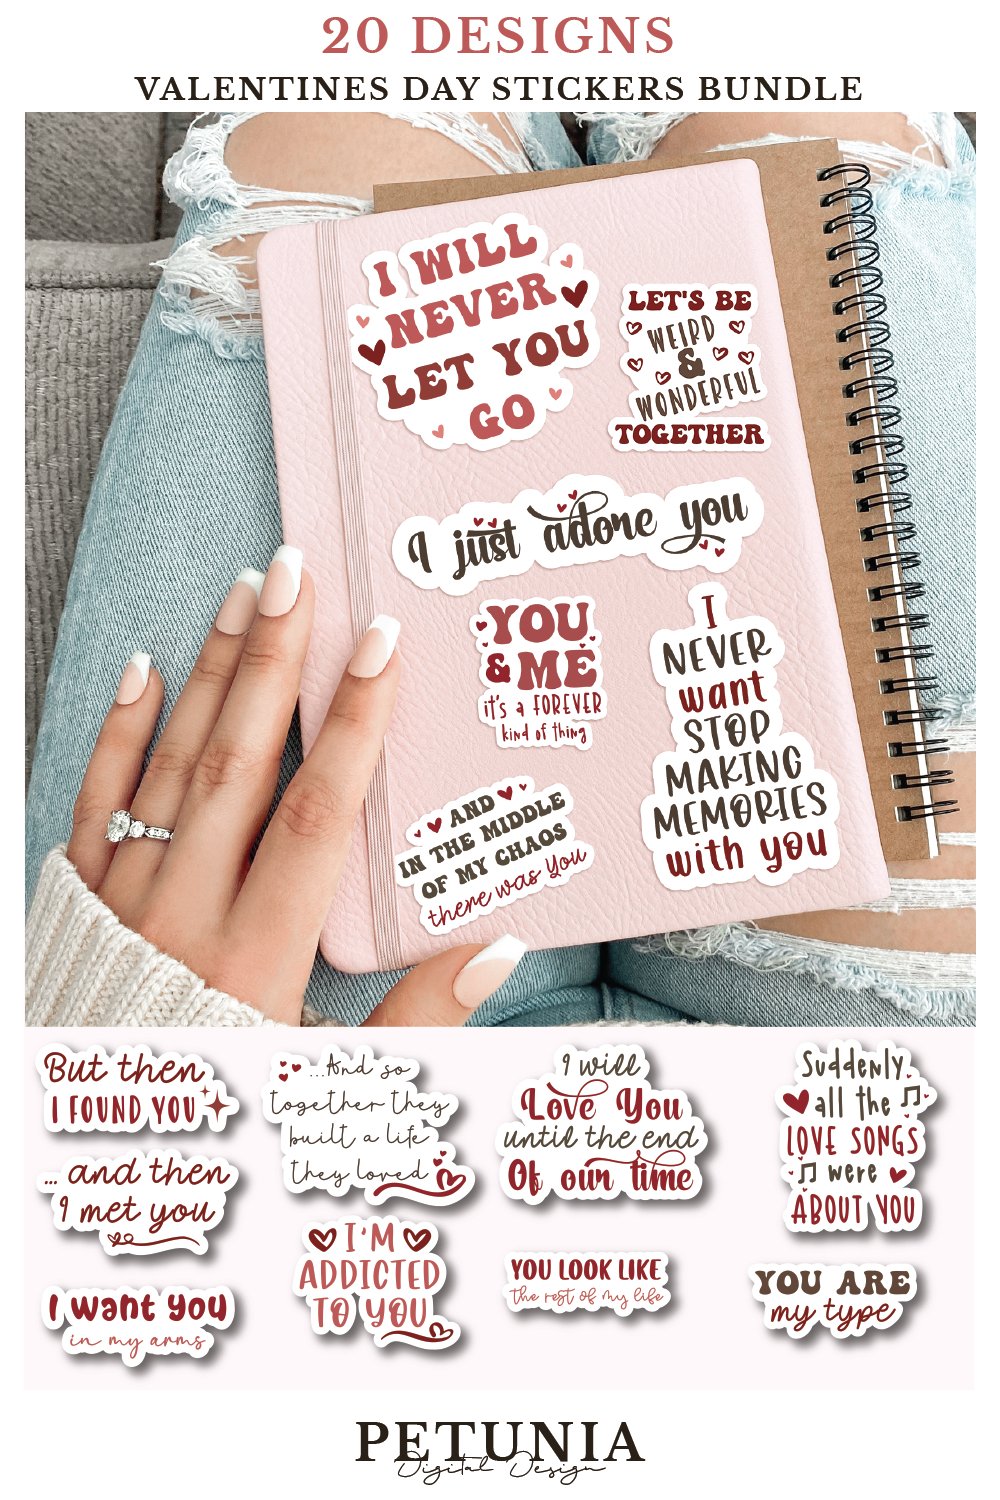 20 DESIGNS
VALENTINES DAY STICKERS BUNDLE
I WILL
NEVER
LET YOU
GO
LET'S BE
WEIRD
&
WONDERFUL
TOGETHER
I just adore you
YOU
& ME
it's a FOREVER
kind of thing
I
NEVER
want
STOP
MAKING
MEMORIES
with you
AND
IN THE MIDDLE
OF MY CHAOS
there was you
But then
I FOUND YOU
...And so
together they
built a life
they loved
I will
Love You
until the end
Of our time
Suddenly
all the
LOVE SONGS
were
ABOUT YOU
... and then
I met you
I'M
ADDICTED
TO YOU
YOU LOOK LIKE
the rest of my life
YOU ARE
my type
I want you
in my arms
PETUNIA
Digital Design